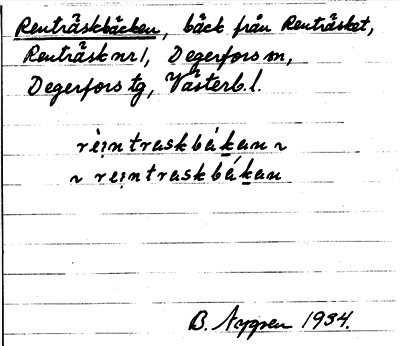 Renträskbäcken, bäck från Renträsket,
Renträsk nr 1, Degerfors sn,
Degerfors tg, Västerb. l.
rèi̯ntraskbákan ~
~ rei̯ntraskbákan
B. Nygren 1934.